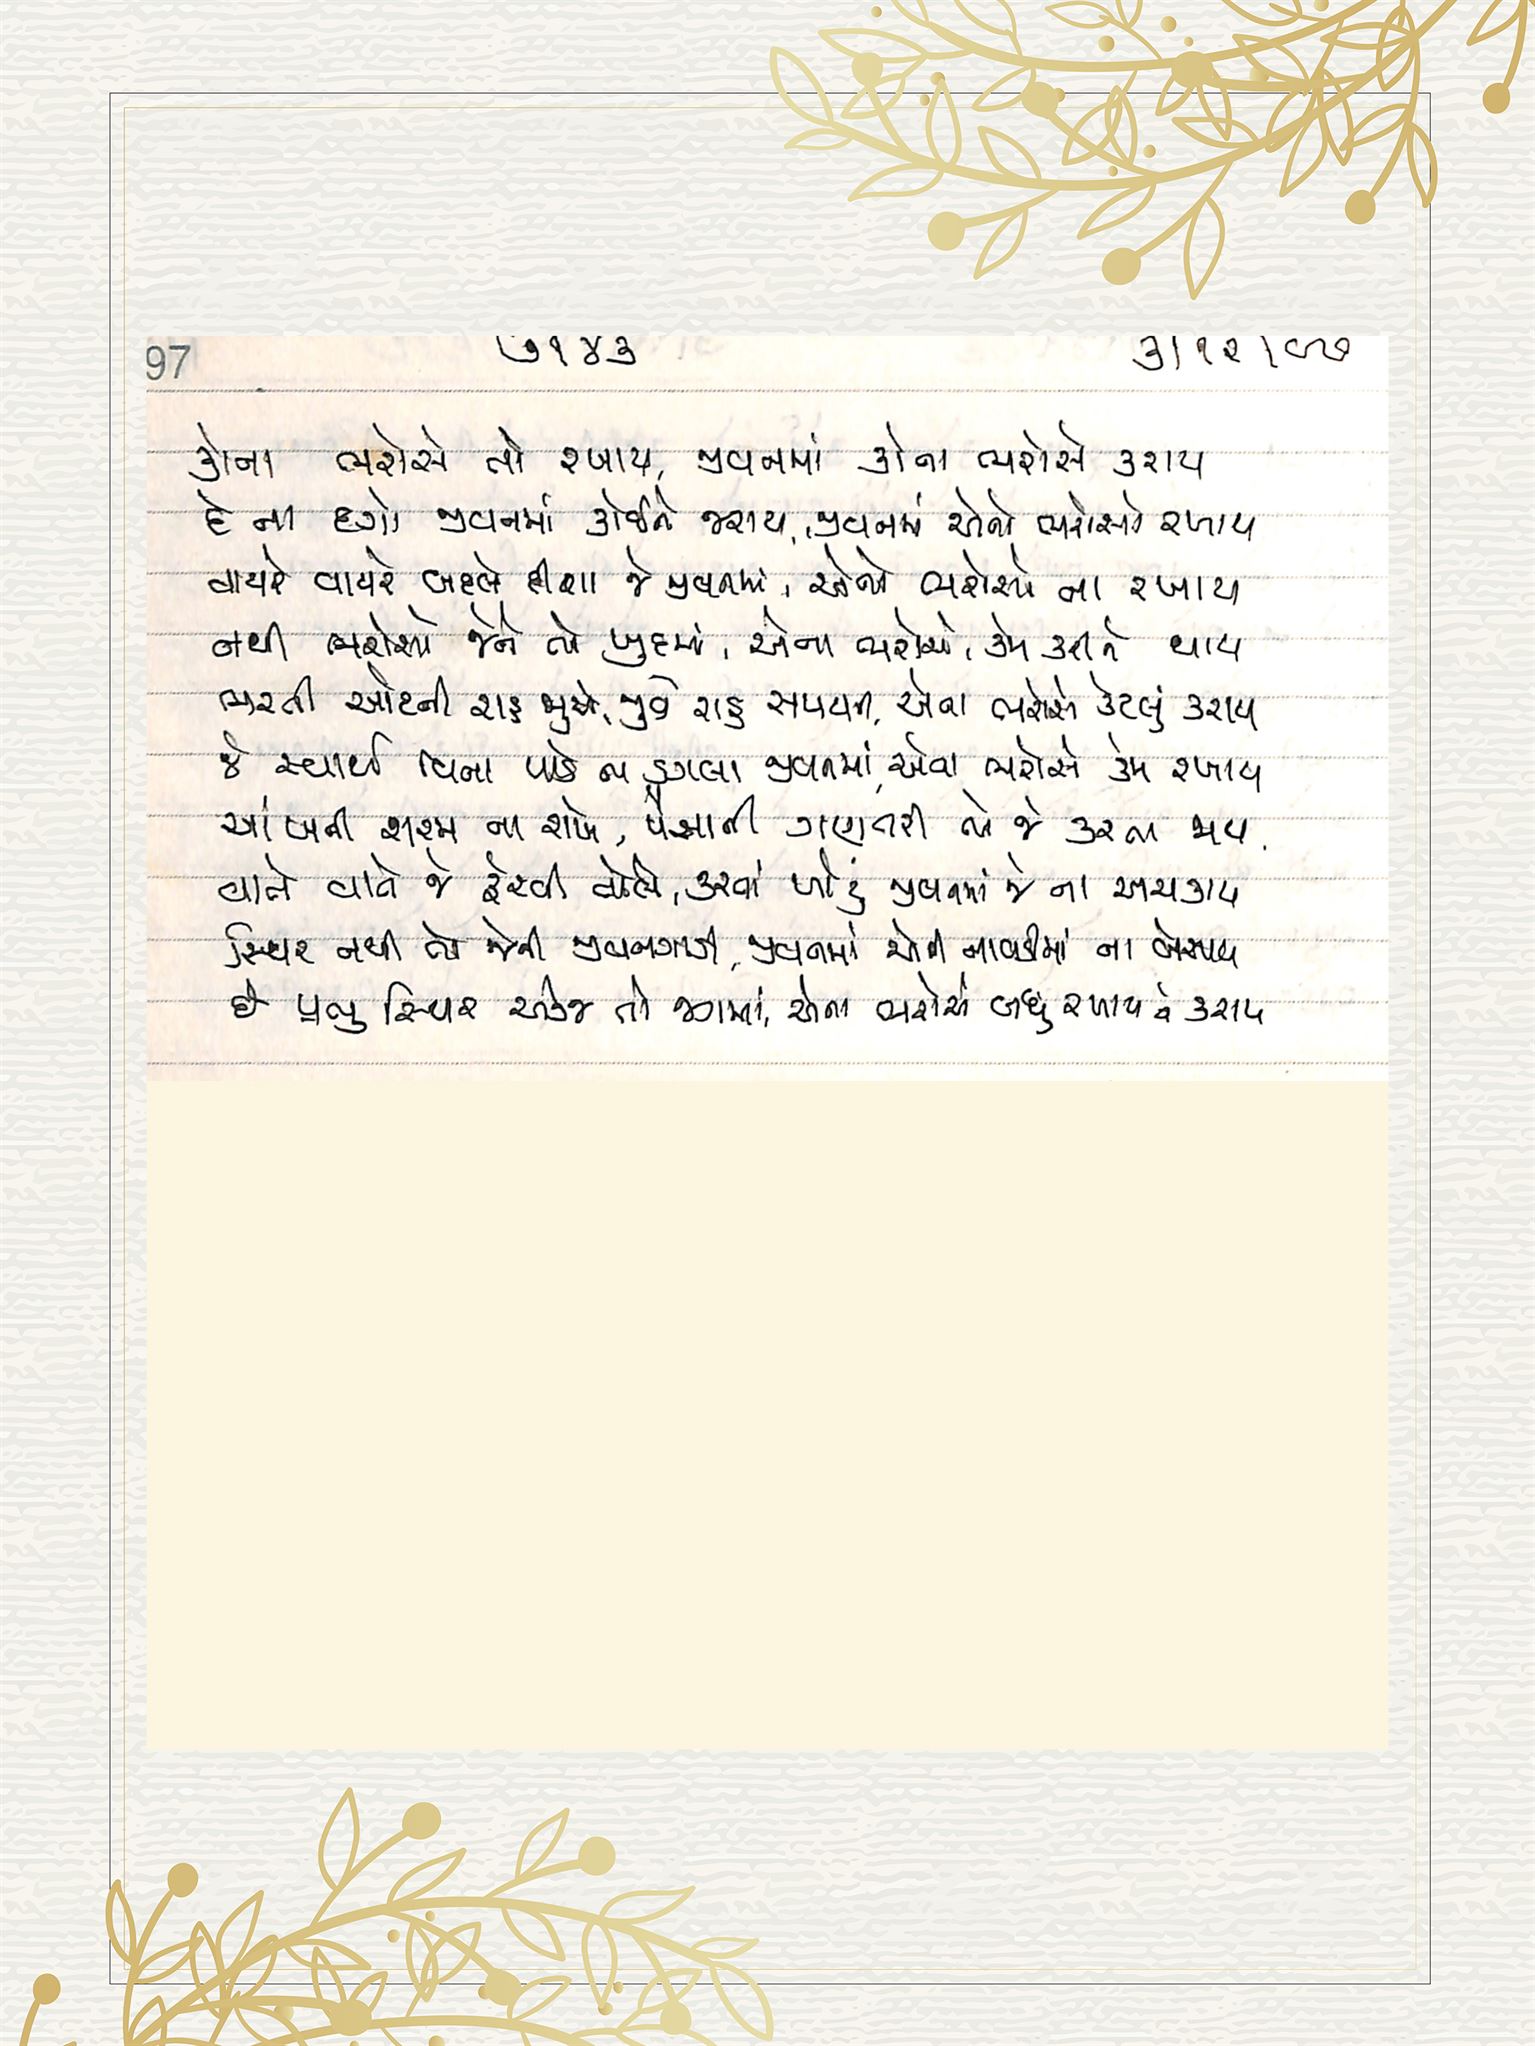 97
૭૧૪૩
૩।૧૨।૯૭
કોના ભરોસે તો રખાય, જીવનમાં કોના ભરોસે કરાય
દે ના દગો જીવનમાં કોઈને જરાય, જીવનમાં એનો ભરોસો રખાય
વાયરે વાયરે બદલે દીશા જે જીવનમાં, એનો ભરોસો ના રખાય
નથી ભરોસો જેને તો ખુદમાં, એના ભરોસે, કેમ કરીને થાય
ભરતી ઓટની રાહ જુએ, રાહ એવા ભરોસે કેટલું કરાય
જે સ્વાર્થ વિના પાડે ના ડગલા જીવનમાં, એવા ભરોસે કેમ રખાય
આંખની શરમ ના રાખે, પૈસાની ગણતરી તો જે કરતા જાય.
વાતે વાતે જે ફેરવી તોળે, કરવાં ખોટું જીવનમાં જે ના અચકાય
સ્થિર નથી તો જેની જીવનગાડી, જીવનમાં એની નાવડીમાં ના બેસાય
છે પ્રભુ સ્થિર એકજ તો જગમાં, એના ભરોસે બધું રખાય ને કરાય